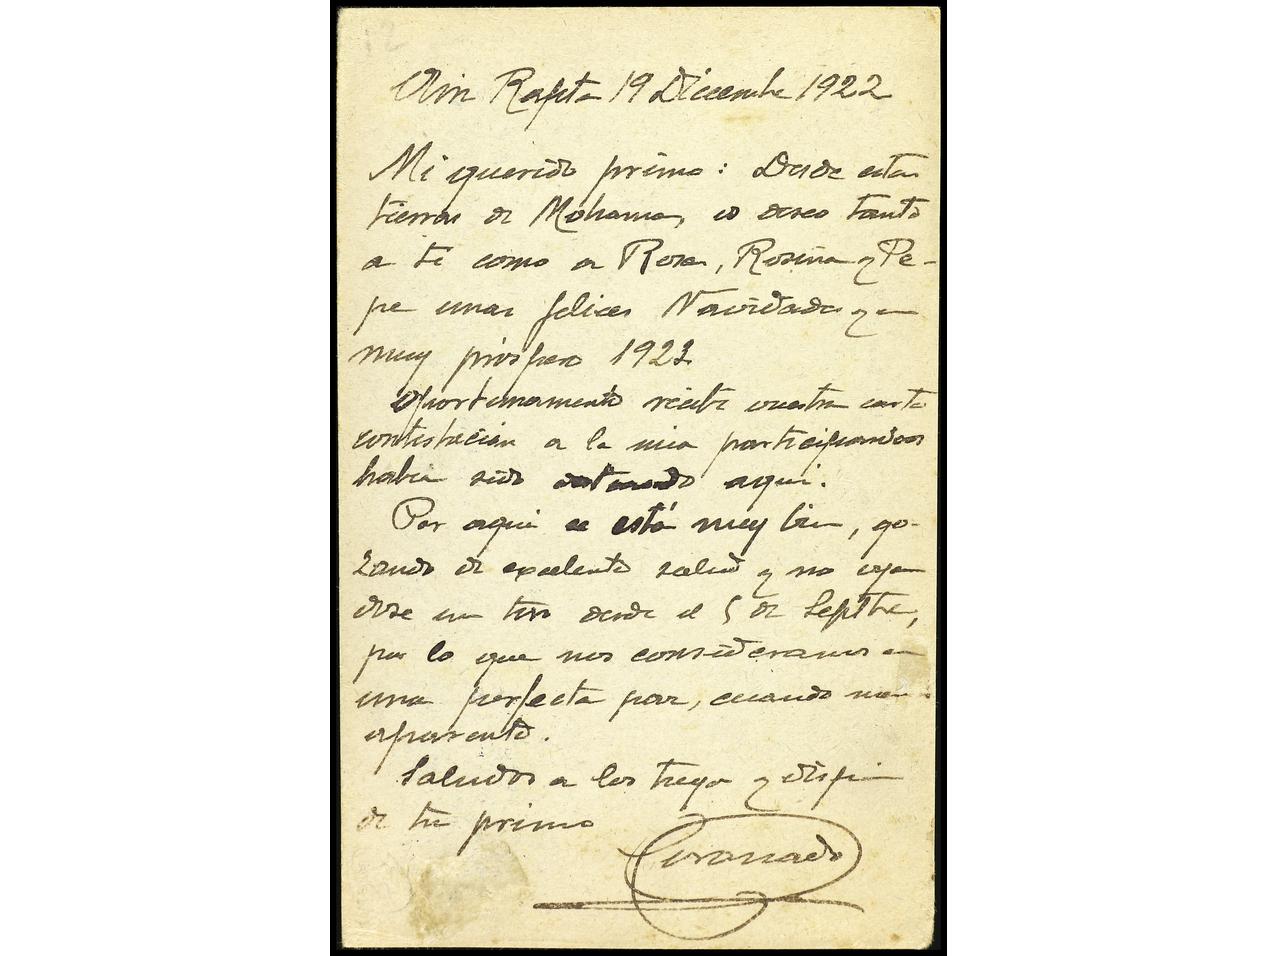 Ain Rapta 19 Diciembre 1922
Mi querido primo: Desde estas
tierras de Mohama, os deseo tanto
a ti como a Rosa, Rosina y Pe-
pe unas felices Navidades y un
muy próspero 1923
Oportunamente recibí vuestra carta
contestación a la mia participandoos
había sido destinado aqui.
Por aqui se está muy bien, go-
zando de excelente salud y no oyen
dose un tiro desde el 5 de Septbre,
por lo que nos consideramos en
una perfecta paz, cuando menos
aparente.
Saludos a los tuyos y dispon
de tu primo
Granado